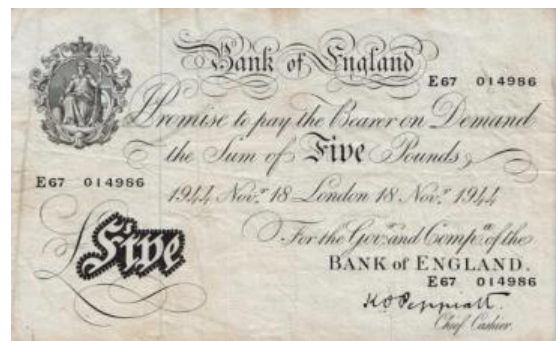 Bank of England
E67 014986
I Promise to pay the Bearer on Demand
the Sum of Five Pounds
E67 014986
1944 Novr 18 London 18 Novr 1944
For the Govr and Compa of the
Five
BANK of ENGLAND.
E67 014986
K O Peppiatt.
Chief Cashier.